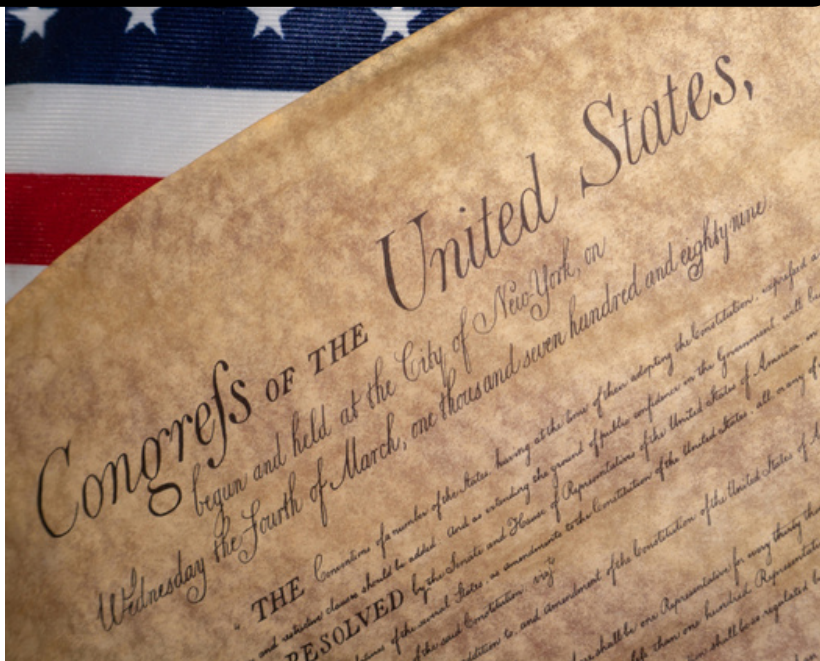 Congreſs OF THE United States,
begun and held at the City of New-York, on
Wednesday the Fourth of March, one thousand seven hundred and eighty nine.
THE Conventions of a number of the States, having at the time of their adopting the Constitution, expreſsed a
and restrictive clauses should be added: And as extending the ground of public confidence in the Government, will be
RESOLVED by the Senate and House of Representatives of the United States of America, in
of the several States, as amendments to the Constitution of the United States, all, or any of
of the said Constitution; viz.
addition to, and amendment of the Constitution of the United States of
shall be one Representative for every thirty
leſs than one hundred Representatives
shall be so regulated